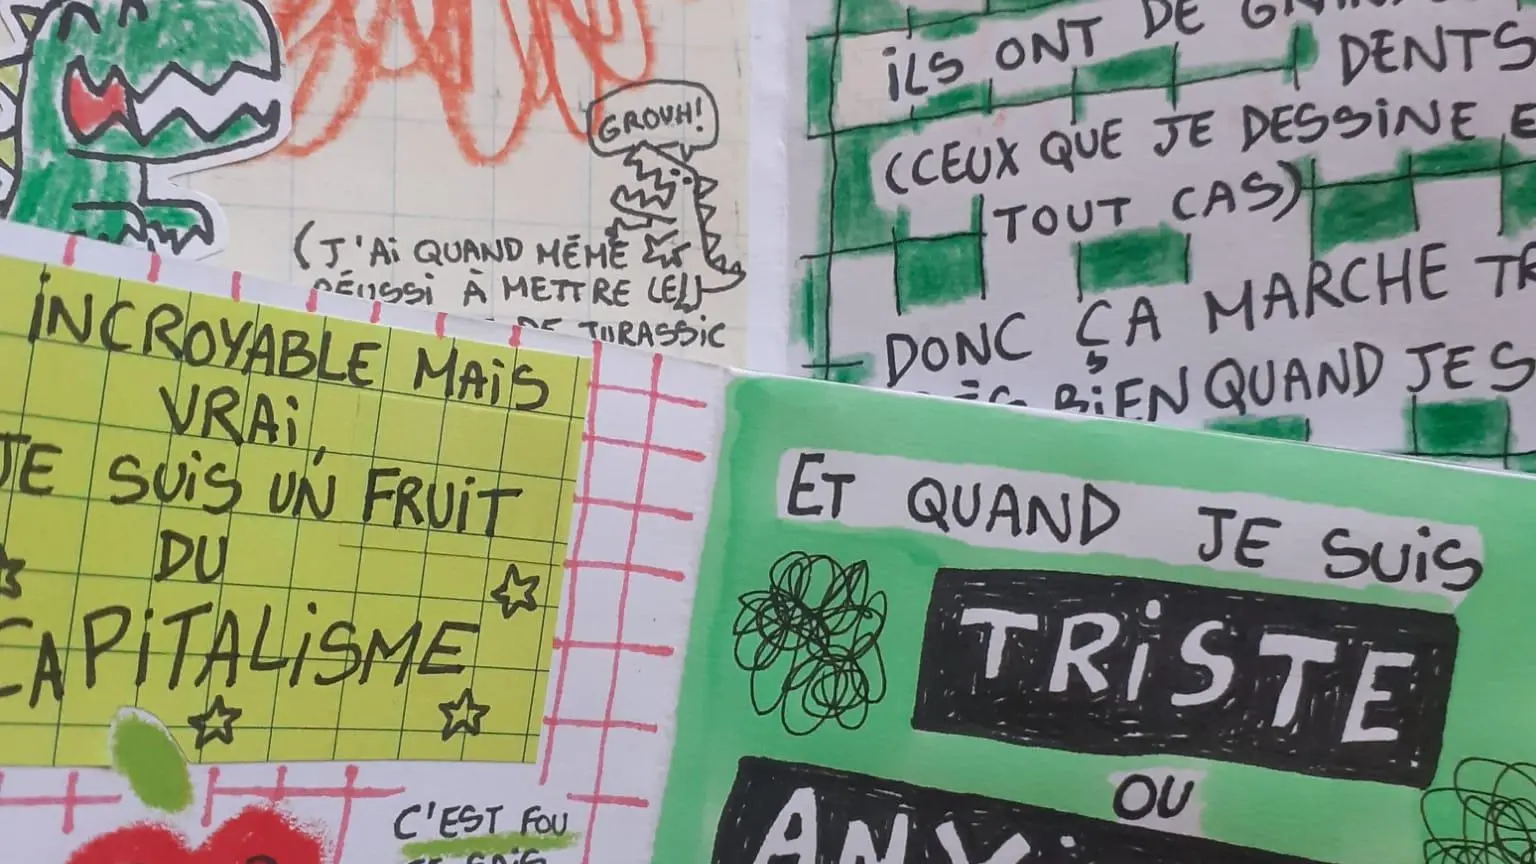 GROUH!
(J'Ai QUAND MÊME
RÉUSSi À METTRE LE(S)
DE JURASSIC
iLS ONT DE
DENTS
(CEUX QUE JE DESSiNE
TOUT CAS)
DONC ÇA MARCHE
BiEN QUAND JE
iNCROYABLE MAiS
VRAi,
JE SUiS UN FRUiT
DU
CAPiTALiSME
C'EST FOU
ET QUAND JE SUiS
TRiSTE
OU